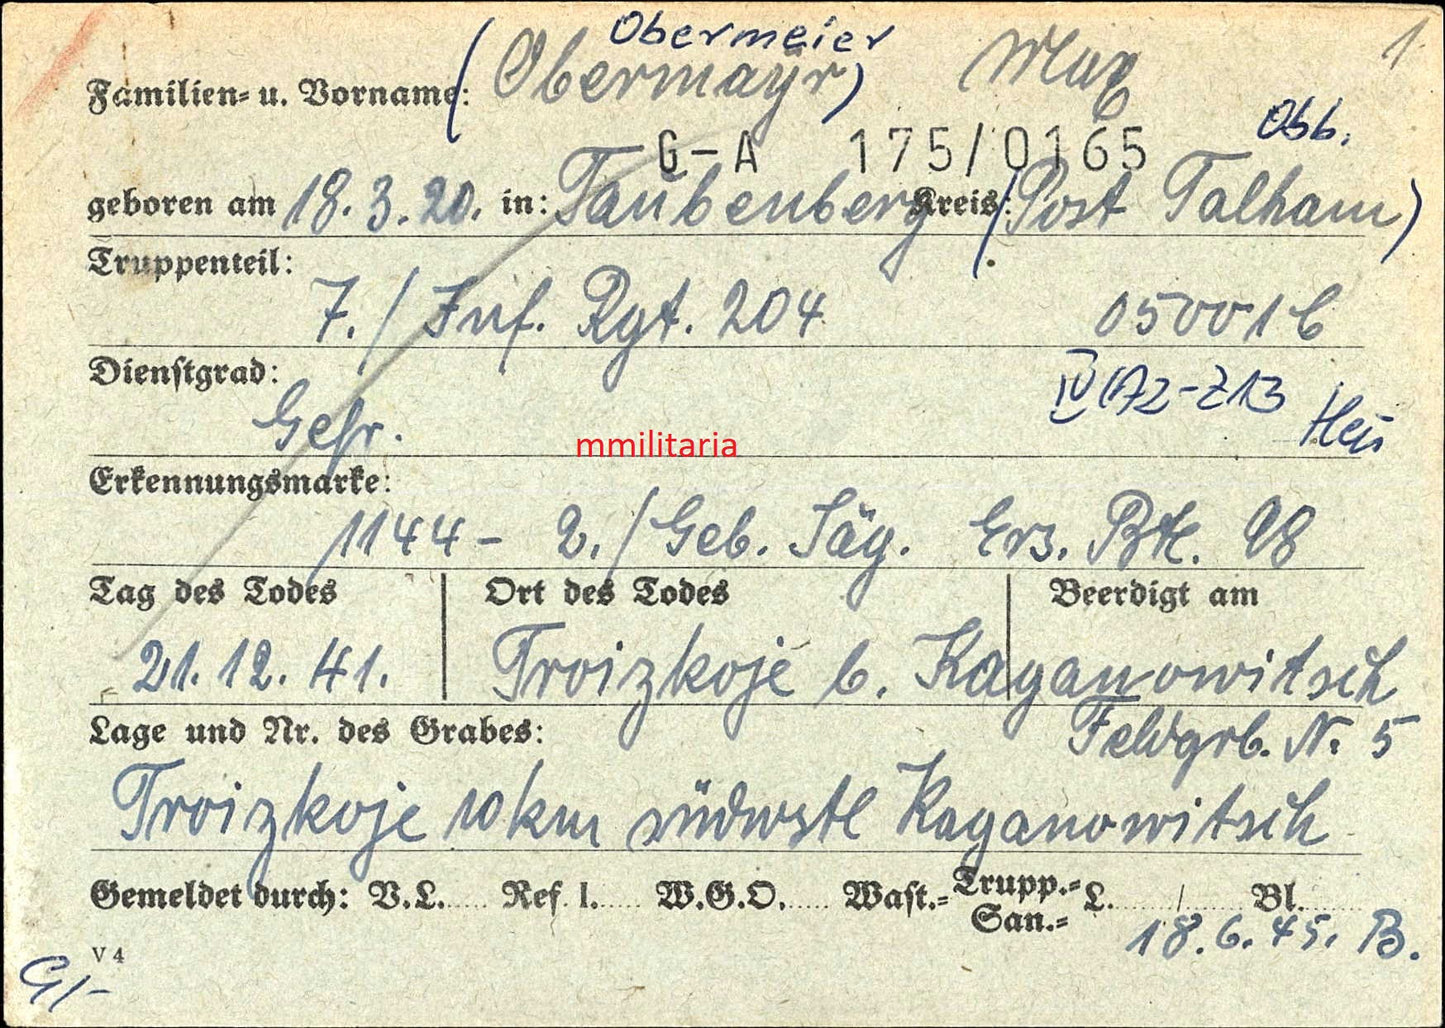 Obermeier
Familien- u. Vorname: (Obermayr) Max 1
G-A 175/0165 Obb.
geboren am 18.3.20. in: Taubenberg Kreis: (Post Talham)
Truppenteil:
7./Inf. Rgt. 204 050016
Dienstgrad:
Gefr.
mmilitaria
Erkennungsmarke:
1144- 2./Geb. Jäg. Ers. Btl. 98
Tag des Todes Ort des Todes Beerdigt am
21.12.41. Troizkoje b. Kaganowitsch
Lage und Nr. des Grabes: Feldgrb. N. 5
Troizkoje 10km südwstl Kaganowitsch
Gemeldet durch: V.L..... Ref. I..... W.G.O..... Wast.- Trupp.- San.- L......../........ Bl.........
18.6.45. B.
V 4